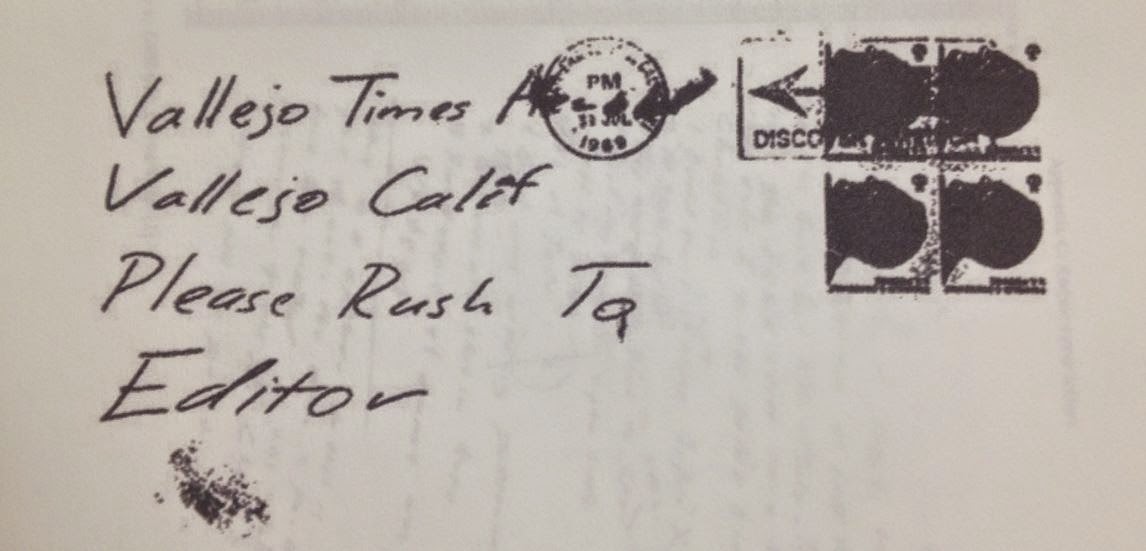 Vallejo Times
PM
31 JUL
1969
DISCOVER
Vallejo Calif
Please Rush To
Editor